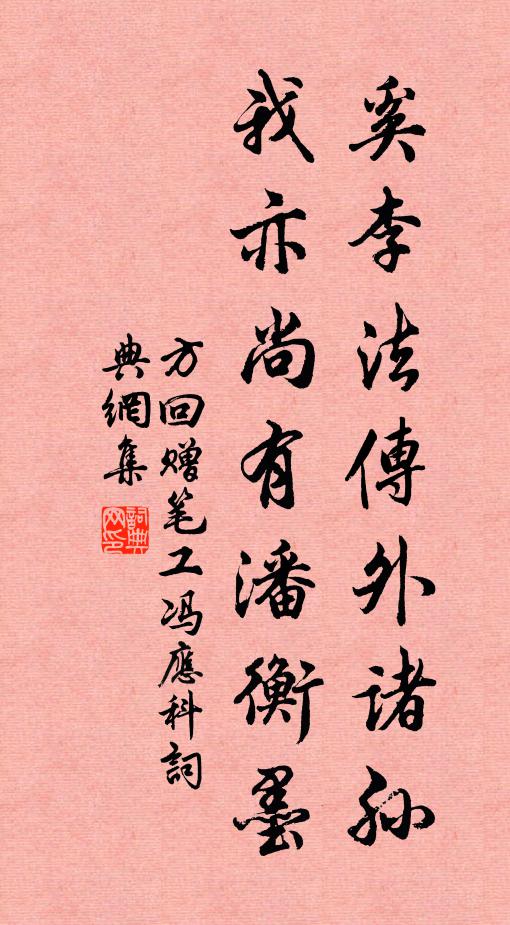 奚李法傳外諸孫
我亦尚有潘衡墨
方回赠笔工冯應科詞
典網集
詞典
网印